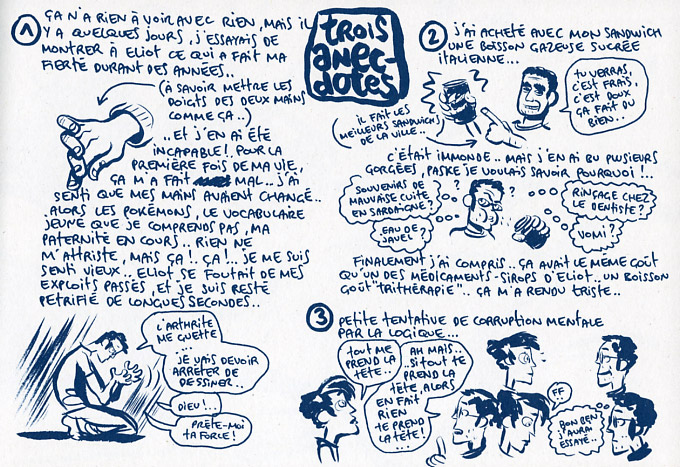 TROIS
ANEC-
DOTES
1
ÇA N'A RIEN À VOIR AVEC RIEN, MAIS IL
Y A QUELQUES JOURS, J'ESSAYAIS DE
MONTRER À ELIOT CE QUI A FAIT MA
FIERTÉ DURANT DES ANNÉES..
(À SAVOIR METTRE LES
DOIGTS DES DEUX MAINS
COMME ÇA..)
..ET J'EN AI ÉTÉ
INCAPABLE! POUR LA
PREMIÈRE FOIS DE MA VIE,
ÇA M'A FAIT MAL.. J'AI
SENTI QUE MES MAINS AVAIENT CHANGÉ..
ALORS LES POKÉMONS, LE VOCABULAIRE
JEUNE QUE JE COMPRENDS PAS, MA
PATERNITÉ EN COURS.. RIEN NE
M'ATTRISTE, MAIS ÇA!.. ÇA!.. JE ME SUIS
SENTI VIEUX.. ELIOT SE FOUTAIT DE MES
EXPLOITS PASSÉS, ET JE SUIS RESTÉ
PETRIFIÉ DE LONGUES SECONDES..
L'ARTHRITE
ME GUETTE
...
JE VAIS DEVOIR
ARRÊTER DE
DESSINER..
DIEU!...
PRÊTE-MOI
TA FORCE!
2
J'AI ACHETÉ AVEC MON SANDWICH
UNE BOISSON GAZEUSE SUCRÉE
ITALIENNE...
TU VERRAS,
C'EST FRAIS,
C'EST DOUX
ÇA FAIT DU
BIEN..
(IL FAIT LES
MEILLEURS SANDWICHS
DE LA VILLE..)
C'ÉTAIT IMMONDE.. MAIS J'EN AI BU PLUSIEURS
GORGÉES, PASKE JE VOULAIS SAVOIR POURQUOI!..
SOUVENIRS DE
MAUVAISE CUITE
EN SARDAIGNE?
?
?
RINÇAGE CHEZ
LE DENTISTE?
EAU DE
JAVEL?
VOMI?
FINALEMENT J'AI COMPRIS.. ÇA AVAIT LE MÊME GOÛT
QU'UN DES MÉDICAMENTS-SIROPS D'ELIOT.. UN BOISSON
GOÛT "TRITHÉRAPIE".. ÇA M'A RENDU TRISTE..
3
PETITE TENTATIVE DE CORRUPTION MENTALE
PAR LA LOGIQUE...
TOUT ME
PREND LA
TÊTE..
AH MAIS..
..SI TOUT TE
PREND LA
TÊTE, ALORS
EN FAIT
RIEN
TE PREND
LA TÊTE!
FF
BON BEN
J'AURAI
ESSAYÉ..